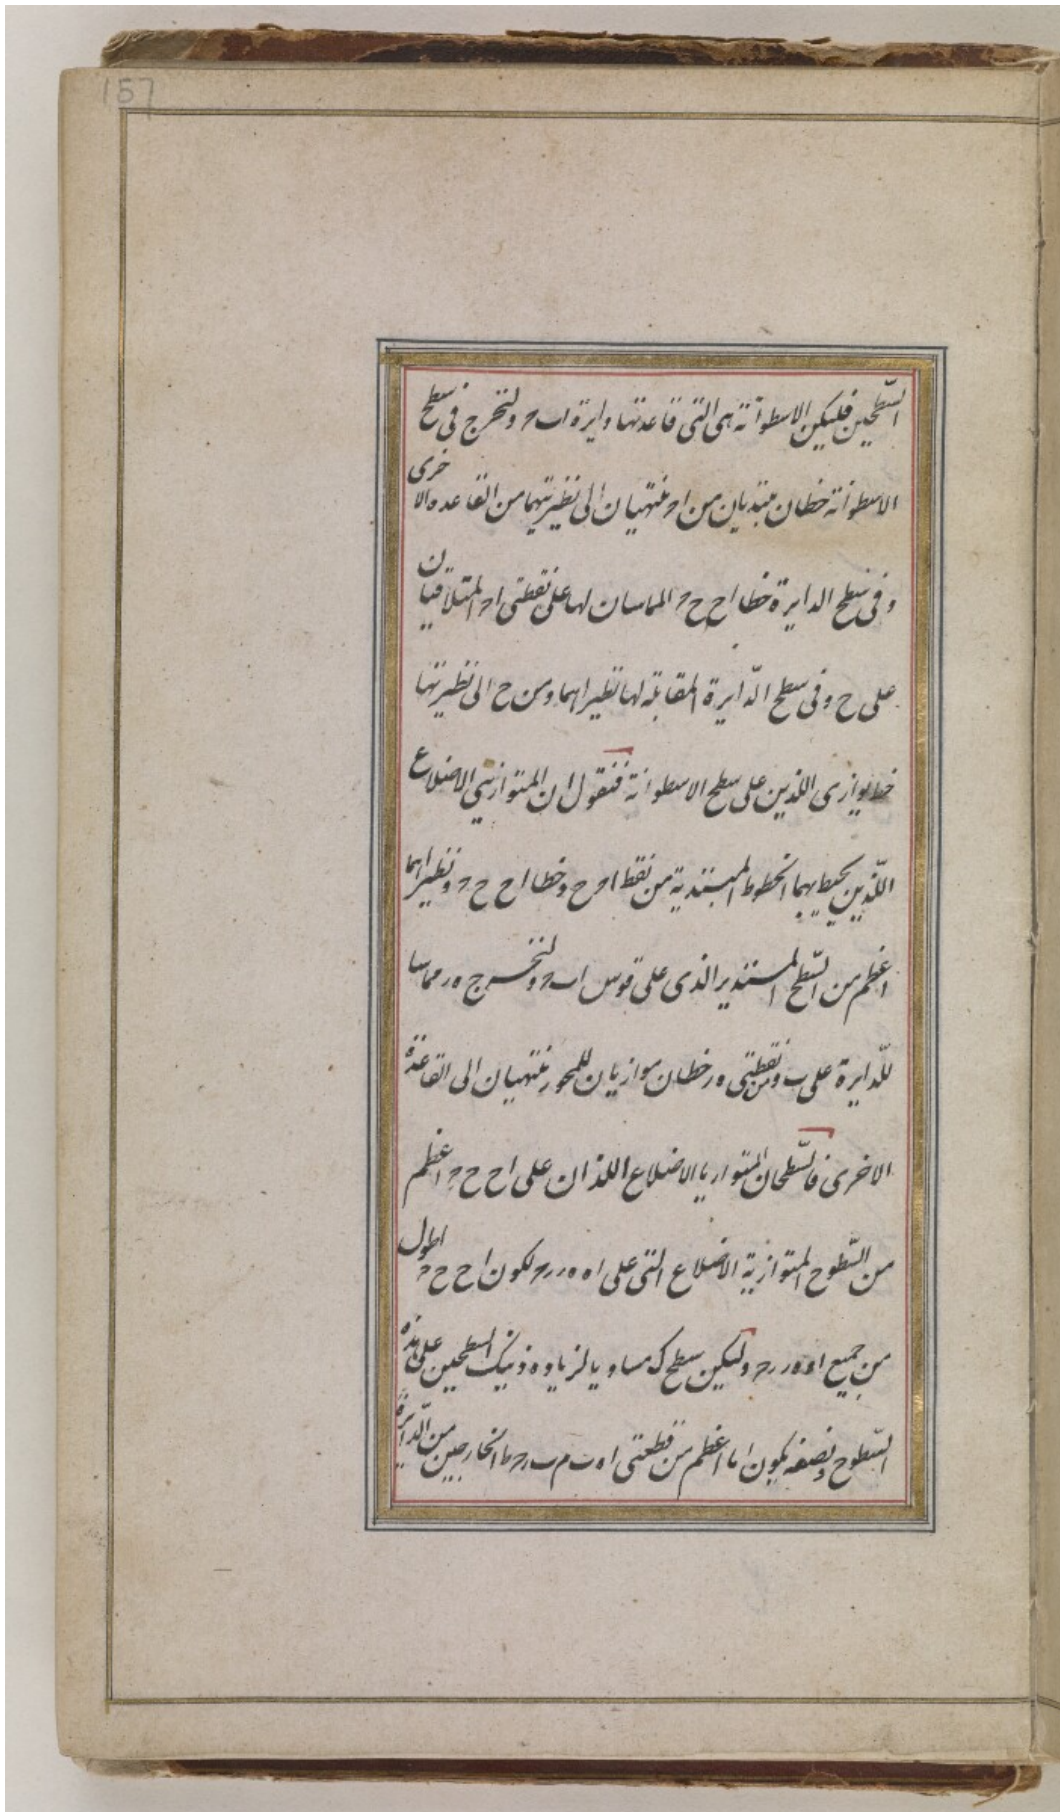 157
السّطحين فليكن الاسطوانة هى التى قاعدتها دايرة ا ب حـ ولنخرج فى سطح
الاسطوانة خطان مبتديان من ا حـ منتهيان الى نظيرتيهما من القاعده الاخرى
وفى سطح الدايرة خطا ا ح ح حـ المماسان لها على نقطتى ا حـ المتلاقيان
على ح وفى سطح الدّايرة المقابلة لها نظيراهما ومن ح الى نظيرتها
خط يوازى اللذين على سطح الاسطوانة فنقول ان المتوازيى الاضلاع
اللّذين يحيط بهما الخطوط المبتدية من نقط ا حـ ح وخطا ا ح ح حـ ونظيراهما
اعظم من السّطح المستدير الذى على قوس ا ب حـ ولنخرج ه ر مماسا
للّدايرة على ب ومن نقطتى ه ر خطان موازيان للمحور منتهيان الى القاعدة
الاخرى فالسّطحان المتوازيا الاضلاع اللذان على ا ح ح حـ اعظم
من السّطوح المتوازية الاضلاع التى على ا ه ه ر ر حـ لكون ا ح ح حـ اطول
من جميع ا ه ه ر ر حـ وليكن سطح ك مساويا لزياده ذينك السطحين على هذه
السّطوح ونصفه يكون اما اعظم من قطعتى ا ه ب م ب ر حـ ط الخارجين من الدّايرة